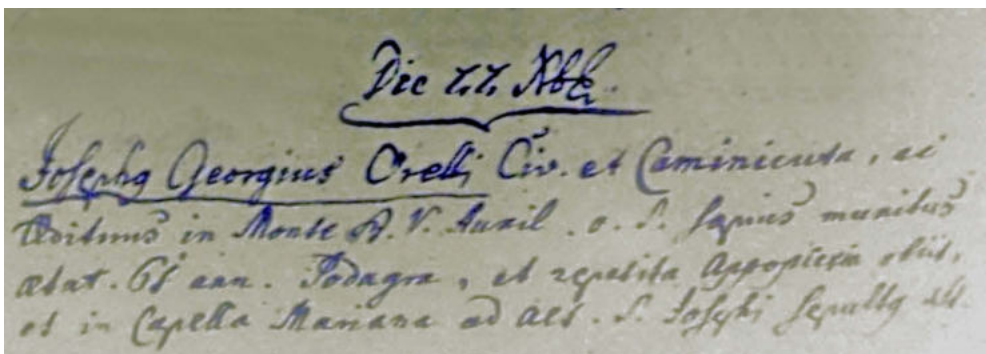 Die 22 Xbr.
Josephus Georgius Orelli Civ. et Caminicida, ac
Ædituus in Monte B. V. Auxil. o. S. sæpius munitus
ætat. 61 ann. Podagra, et repetita Appoplexia obiit,
et in Capella Mariana ad Aed. S. Josephi Sepultus est.